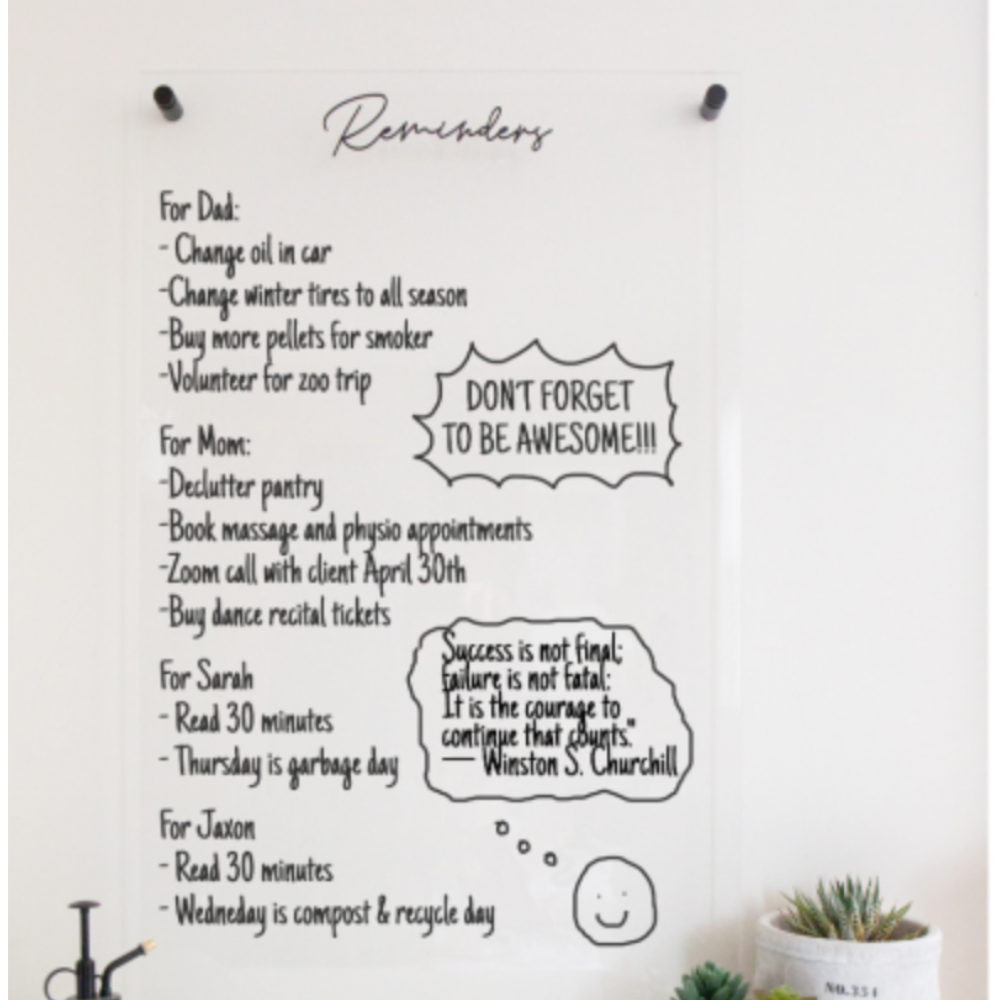 Reminders
For Dad:
- Change oil in car
-Change winter tires to all season
-Buy more pellets for smoker
-Volunteer for zoo trip
DON'T FORGET
TO BE AWESOME!!!
For Mom:
-Declutter pantry
-Book massage and physio appointments
-Zoom call with client April 30th
-Buy dance recital tickets
Success is not final;
failure is not fatal:
It is the courage to
continue that counts."
— Winston S. Churchill
For Sarah
- Read 30 minutes
- Thursday is garbage day
For Jaxon
- Read 30 minutes
- Wedneday is compost & recycle day
NO.354